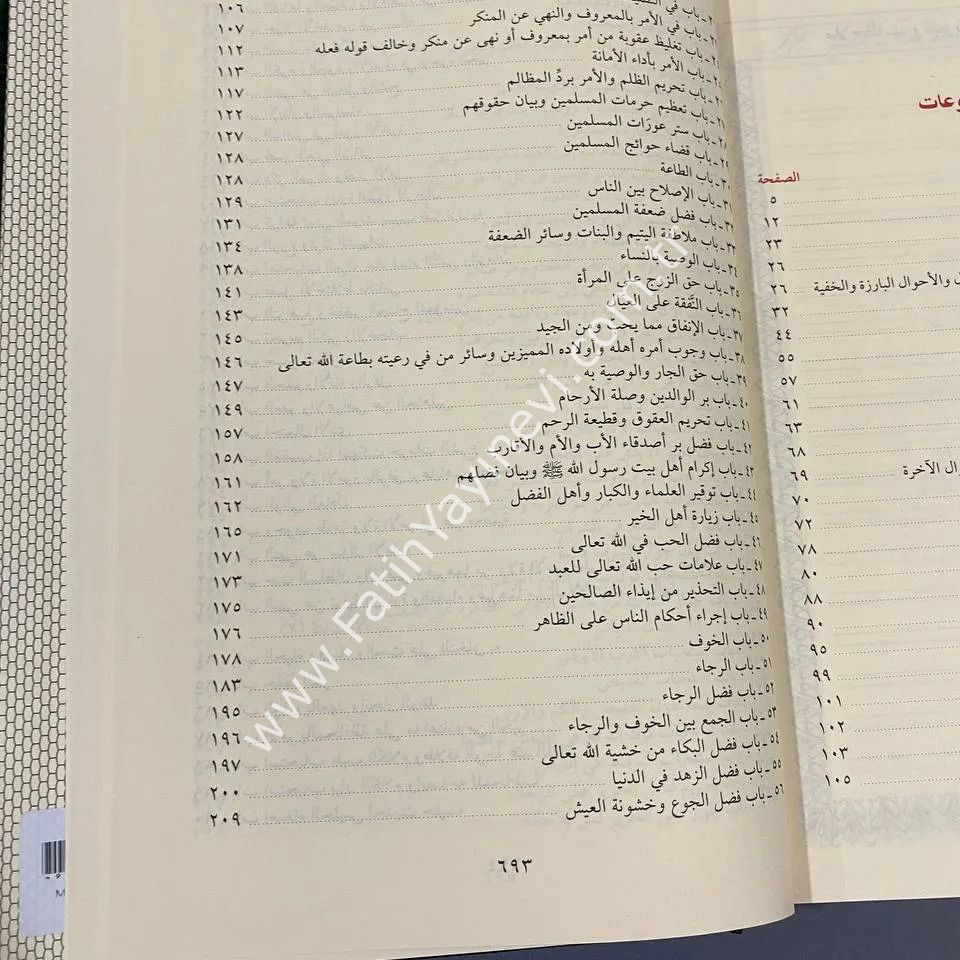 وعات
الصفحة
٥
١٢
٢٣
٢٦
ل والأحوال البارزة والخفية ٢٦
٣٢
٤٤
٥٥
٥٧
٦١
٦٣
٦٨
ال الآخرة ٦٩
٧٠
٧٢
٧٨
٨٠
٨٨
٩٠
٩٥
٩٩
١٠١
١٠٢
١٠٣
١٠٥
باب في ١٠٦
باب في الأمر بالمعروف والنهي عن المنكر ١٠٧
باب تغليظ عقوبة من أمر بمعروف أو نهى عن منكر وخالف قوله فعله ١١٢
باب الأمر بأداء الأمانة ١١٣
باب تحريم الظلم والأمر بردِّ المظالم ١١٧
باب تعظيم حرمات المسلمين وبيان حقوقهم ١٢٢
٢٨ـ باب ستر عورَات المسلمين ١٢٧
٢٩ـ باب قضاء حوائج المسلمين ١٢٨
٣٠ـ باب الطاعة ١٢٨
٣١ـ باب الإصلاح بين الناس ١٢٩
٣٢ـ باب فضل ضعفة المسلمين ١٣١
٣٣ـ باب ملاطفة اليتيم والبنات وسائر الضعفة ١٣٤
٣٤ـ باب الوصية بالنساء ١٣٨
٣٥ـ باب حق الزوج على المرأة ١٤١
٣٦ـ باب النَّفقة على العيال ١٤٣
٣٧ـ باب الإنفاق مما يحبُّ ومن الجيد ١٤٥
٣٨ـ باب وجوب أمره أهله وأولاده المميزين وسائر من في رعيته بطاعة الله تعالى ١٤٦
٣٩ـ باب حق الجار والوصية به ١٤٧
٤٠ـ باب بر الوالدين وصلة الأرحام ١٤٩
٤١ـ باب تحريم العقوق وقطيعة الرحم ١٥٧
٤٢ـ باب فضل بر أصدقاء الأب والأم والأقارب ١٥٨
٤٣ـ باب إكرام أهل بيت رسول الله ﷺ وبيان فضلهم ١٦١
٤٤ـ باب توقير العلماء والكبار وأهل الفضل ١٦٢
٤٥ـ باب زيارة أهل الخير ١٦٥
٤٦ـ باب فضل الحب في الله تعالى ١٧١
٤٧ـ باب علامات حب الله تعالى للعبد ١٧٣
٤٨ـ باب التحذير من إيذاء الصالحين ١٧٥
٤٩ـ باب إجراء أحكام الناس على الظاهر ١٧٦
٥٠ـ باب الخوف ١٧٨
٥١ـ باب الرجاء ١٨٣
٥٢ـ باب فضل الرجاء ١٩٥
٥٣ـ باب الجمع بين الخوف والرجاء ١٩٦
٥٤ـ باب فضل البكاء من خشية الله تعالى ١٩٧
٥٥ـ باب فضل الزهد في الدنيا ٢٠٠
٥٦ـ باب فضل الجوع وخشونة العيش ٢٠٩
٦٩٣
www.FatihYayinevi.com.tr